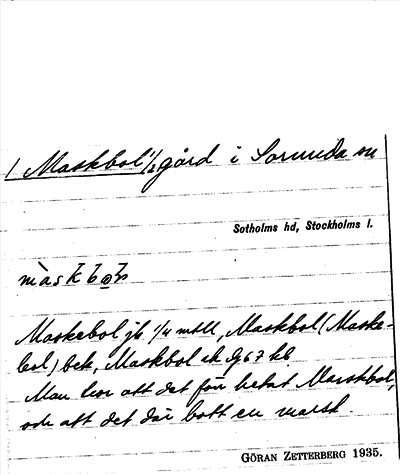 / Maskbol 1/2 gård i Sorunda sn
Sotholms hd, Stockholms l.
Maskebol jb 1/4 mtll, Maskbol (Maske-
bol) bek, Maskbol ek G67 hb
Man tror att det förr hetat Marskbol,
och att det där bott en marsk.
GÖRAN ZETTERBERG 1935.